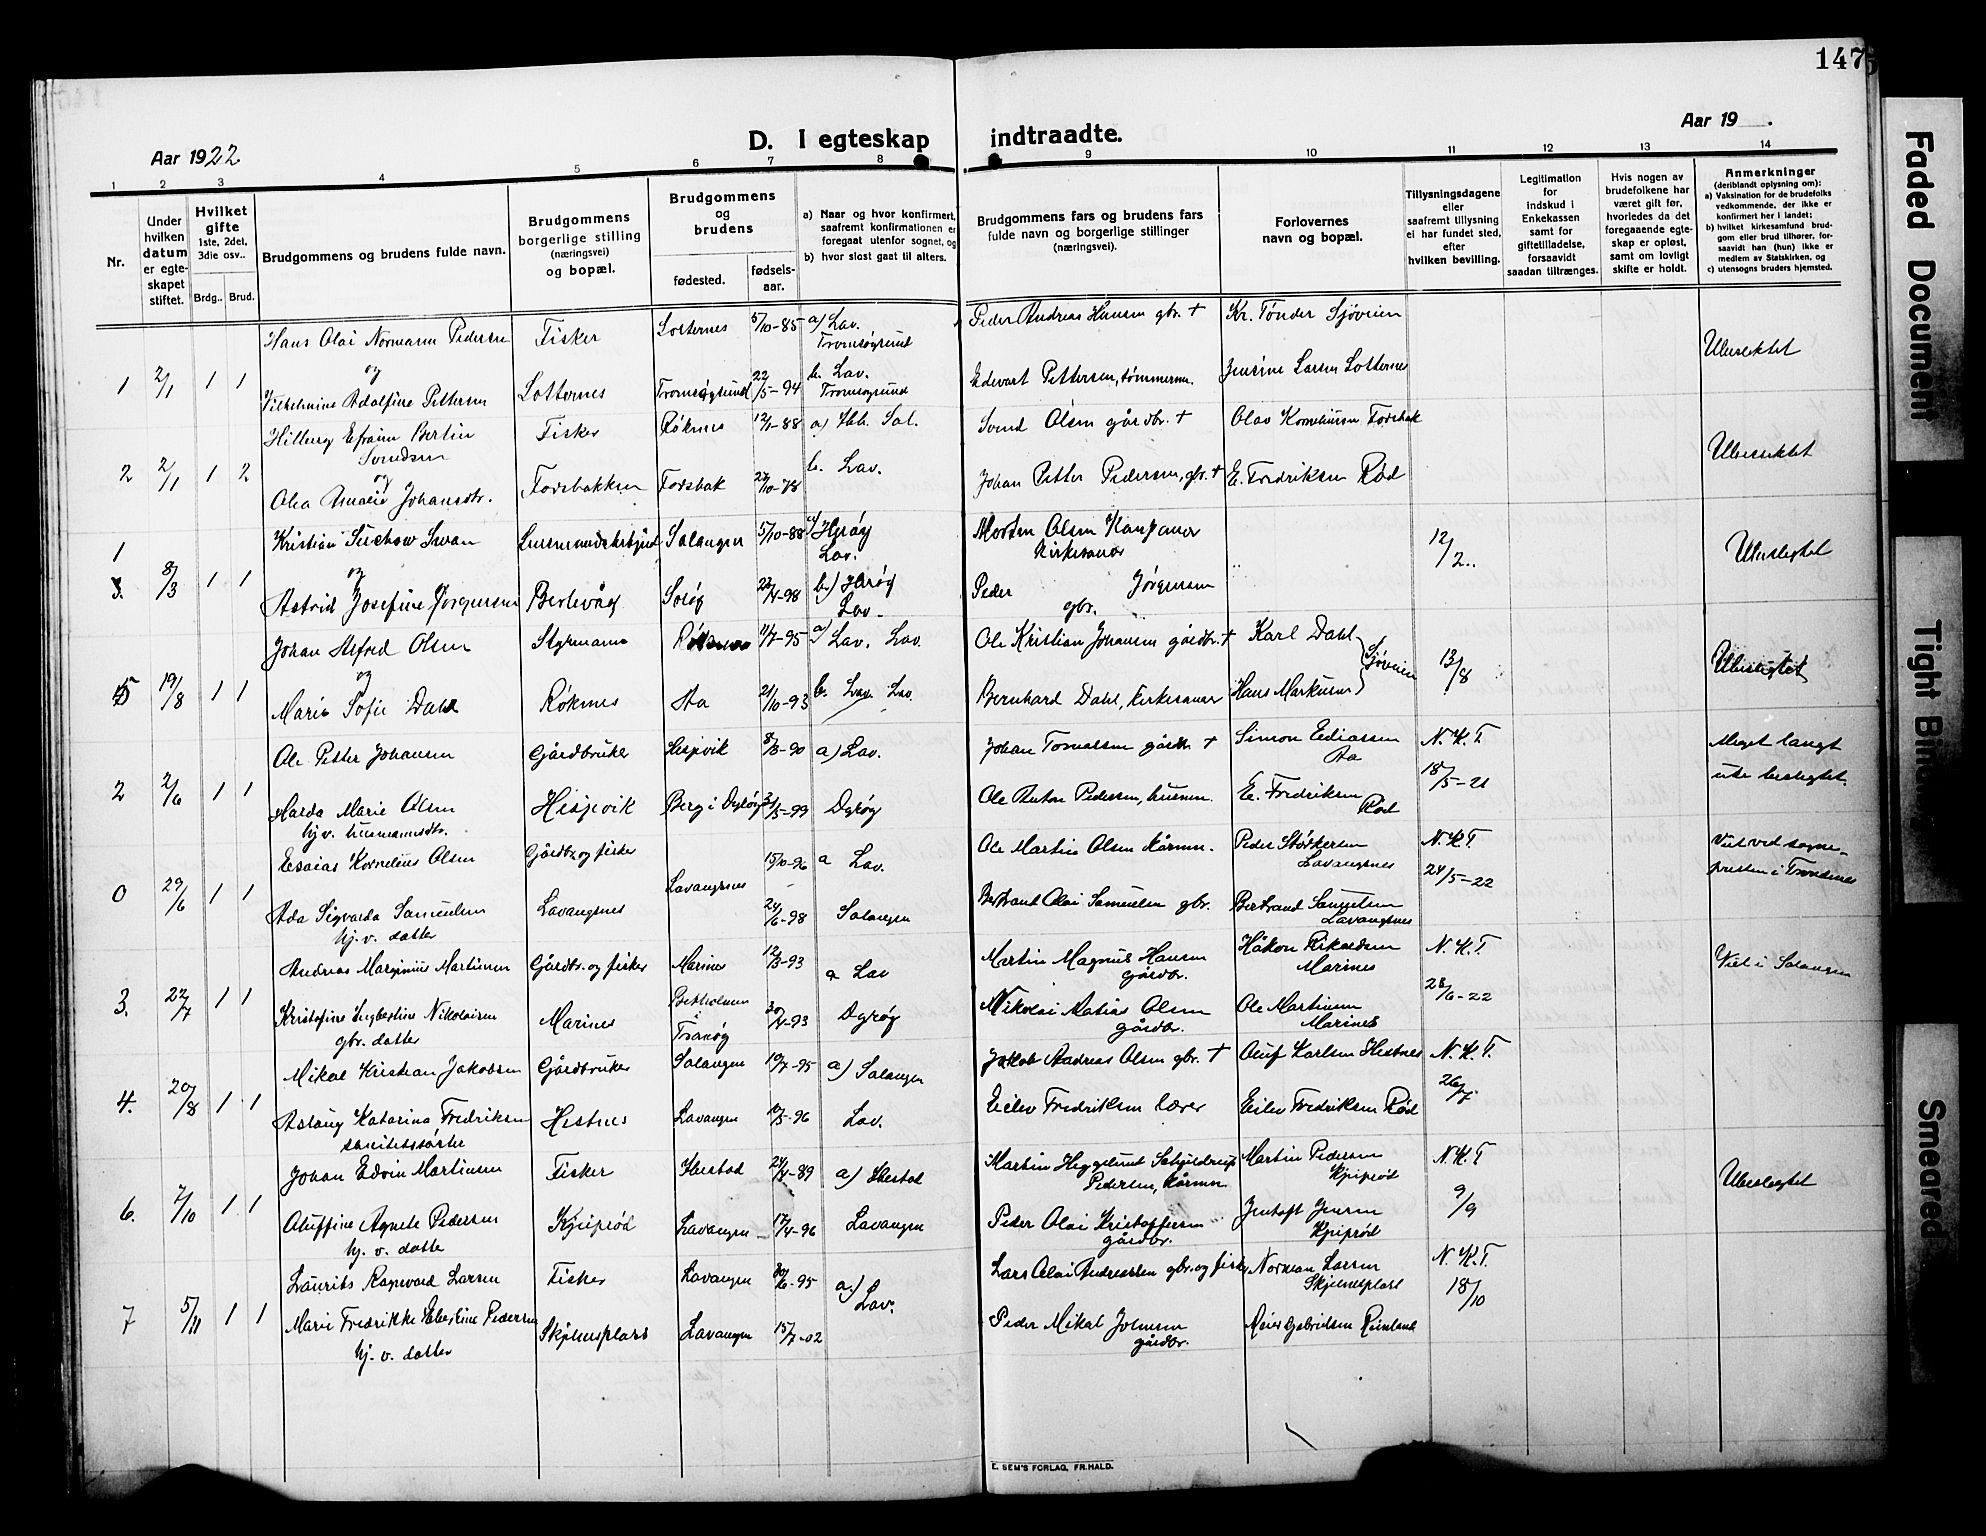 147
Aar 1922
D. I egteskap indtraadte.
Aar 19
1 2 3 4 5 6 7 8 9 10 11 12 13 14
Nr.
Under hvilken datum er egteskapet stiftet.
Hvilket gifte 1ste, 2det, 3die osv..
Brdg.. Brud.
Brudgommens og brudens fulde navn.
Brudgommens borgerlige stilling (næringsvei) og bopæl.
Brudgommens og brudens
fødested.
fødselsaar.
a) Naar og hvor konfirmert, saafremt konfirmationen er foregaat utenfor sognet, og
b) hvor sidst gaat til alters.
Brudgommens fars og brudens fars fulde navn og borgerlige stillinger (næringsvei).
Forlovernes navn og bopæl.
Tillysningsdagene eller saafremt tillysning ei har fundet sted, efter hvilken bevilling.
Legitimation for indskud i Enkekassen samt for giftetilladelse, forsaavidt saadan tiltrænges.
Hvis nogen av brudefolkene har været gift før, hvorledes da det foregaaende egteskap er opløst, samt om lovligt skifte er holdt.
Anmerkninger
(deriblandt oplysning om):
a) Vaksination for de brudefolks vedkommende, der ikke er konfirmert her i landet;
b) hvilket kirkesamfund brudgom eller brud tilhører, forsaavidt han (hun) ikke er medlem av Statskirken, og
c) utensogns bruders hjemsted.
Hans Olai Normann Pedersen Fisker Lotternes 5/10-85 a) Lav. Tromsøysund Peder Andreas Hansen gbr. + Kr. Tønder Sjøveien
1 2/1 1 1 og Ubeslektet
Vilhelmine Adolfine Pettersen Lotternes Tromsøysund 22/5-94 b. Lav. Tromsøysund Edevart Pettersen, tømmerm. Jensine Larsen Lotternes
Hilberg Efraim Berlin Svendsen Fisker Røknes 12/1-88 a) Ibb. Sal. Svend Olsen gårdbr. + Olav Korneliussen Fosbak
2 2/1 1 2 og Ubeslektet
Olia Amalie Johansdtr. Fosbakken Fosbak 27/10-78 b. Lav. Johan Petter Pedersen, gbr. + E. Fredriksen Rød
Kristian Suchow Swan Salangen 5/10-88 a) Herøy Lav. Morten Olsen Kirkesanger 12/2
1 3. 8/3 1 1 og Ubeslegtet
Astrid Josefine Jørgensen Berlevåg Sørøy 23/4-98 b) Herøy Lav. Peder Jørgensen gbr.
Johan Alfred Olsen Styrmann Røknes 11/7-95 a) Lav. Lav. Ole Kristian Johansen gårdbr. + Karl Dahl
5 19/8 1 1 og Sjøveien 13/8 Ubeslegtet
Marie Sofie Dahl Røknes Aa 21/10-93 b. Lav. Lav. Bernhard Dahl, kirkesanger Hans Markussen
Ole Petter Johansen Gårdbruker Hesjevik 8/3-90 a) Lav. Johan Tomassen gårdbr + Simon Ediassen Aa N.K.T. Meget langt
2 2/6 1 1 18/5-21 ute beslegtet.
Harda Marie Olsen Hesjevik Berg i Dyrøy 31/5-99 Dyrøy Ole Anton Pedersen, husm. E. Fredriksen Rød
hjv. husmannsdtr.
Esaias Kornelius Olsen Gårdbr. og fisker 15/10-96 a Lav. Ole Martin Olsen kårmn. Peder Størkersen Lavangsnes N.K.T. Viet ved sogne-
0 29/6 1 1 Lavangsnes 24/5-22 presten i Trondenes
Ada Sigvarda Samuelsen Lavangsnes 24/6-98 Salangen Bertrand Olai Samuelsen gbr. Bertrand Samuelsen Lavangsnes
hj. v. datter
Andreas Marginius Martinsen Gårdbr. og fisker Marines 12/3-93 a Lav Martin Magnus Hansen gårdbr. Håkon Rikardsen Marines N.K.T. Viet i Salangen
3. 22/7 1 1 28/6-22
Kristofine Ingbertine Nikolaisen Marines Tranøy 30/4-93 Dyrøy Nikolai Matias Olsen gårdbr. Ole Martinsen Marines
gbr. datter
Mikal Kristian Jakobsen Gårdbruker Salangen 19/7-95 a) Salangen Jakob Andreas Olsen gbr. + Oluf Karlsen Hestnes N.K.T.
4. 20/8 1 1 26/7
Aslaug Katarina Fredriksen Hestnes Lavangen 18/5-96 Lav. Eilev Fredriksen lærer Eilev Fredriksen Rød
sanitetssøster
Johan Edvin Martinsen Fisker Ibestad 24/8-89 a) Ibestad Martin Heggelund Schjeldrup Pedersen, kårmn. Martin Pedersen Kjeiprød N.K.T.
6. 7/10 1 1 9/9 Ubeslegtet
Oluffine Agnete Pedersen Kjeiprød Lavangen 17/4-96 Lavangen Peder Olai Kristoffersen gårdbr. Jentoft Jensen Kjeiprød
hj. v. datter
Laurits Ragnvard Larsen Fisker Lavangen 30/6-95 a) Lav. Lars Olai Andreassen gbr. og fisk. Norman Larsen Skjelnesplass N.K.T.
7 5/11 1 1 18/10
Marie Fredrikke Elbertine Pedersen Skjelnesplass Lavangen 15/7-02 Peder Mikal Johnsen gårdbr. Meier Gabrielsen Reinland
hj. v. datter
E. SEM'S FORLAG, FR.HALD.
Faded Document
Tight Binding
Smeared